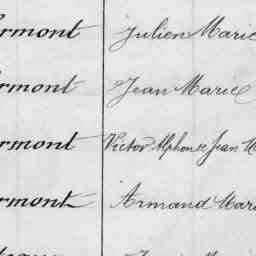 ermont Julien Marie
ermont Jean Marie
ermont Victor Alphonse Jean M
ermont Armand Mari